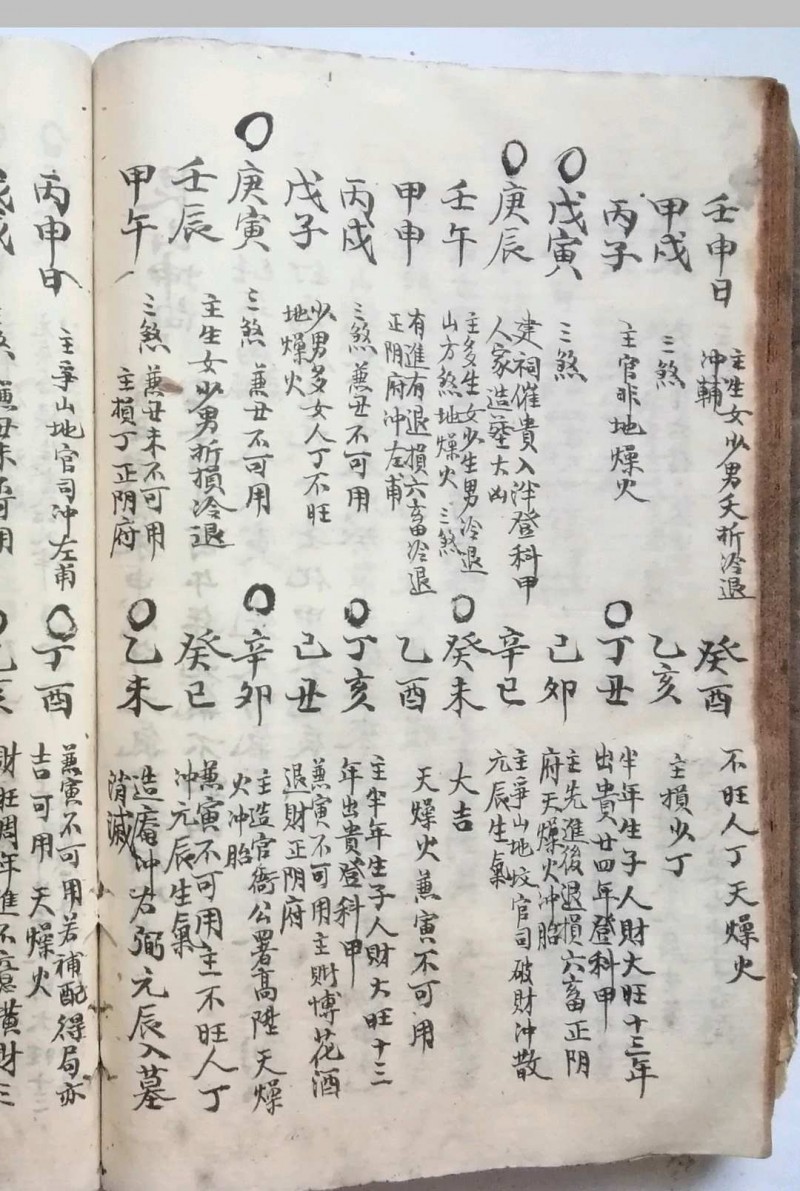 壬申日
主生女少男夭折冷退
沖輔
癸酉
不旺人丁天燥火
甲戌
三煞
乙亥
主損少丁
丙子
主官非地燥火
丁丑
半年生子人財大旺十三年
出貴廿四年登科甲
戊寅
三煞
己卯
主先進後退損六畜正阴
府天燥火沖胎
庚辰
建祠催貴入泮登科甲
人家造葬大凶
辛巳
主爭山地坟官司破財沖散
元辰生氣
壬午
主多生女少生男冷退
山方煞地燥火 三煞
癸未
大吉
甲申
有進有退損六畜冷退
正阴府沖左甫
乙酉
天燥火兼寅不可用
丙戌
三煞兼丑不可用
丁亥
主半年生子人財大旺十三
年出貴登科甲
戊子
少男多女人丁不旺
地燥火
己丑
兼寅不可用主財博花酒
退財正阴府
庚寅
三煞 兼丑不可用
辛卯
主造官衙公署高陞天燥
火沖胎
壬辰
主生女少男折損冷退
癸巳
兼寅不可用主不旺人丁
沖元辰生氣
甲午
三煞 兼丑未不可用
主損丁正阴府
乙未
造庵沖右弼元辰入墓
消滅
丙申日
主爭山地官司沖左甫
丁酉
兼寅不可用若補配得局亦
吉可用 天燥火